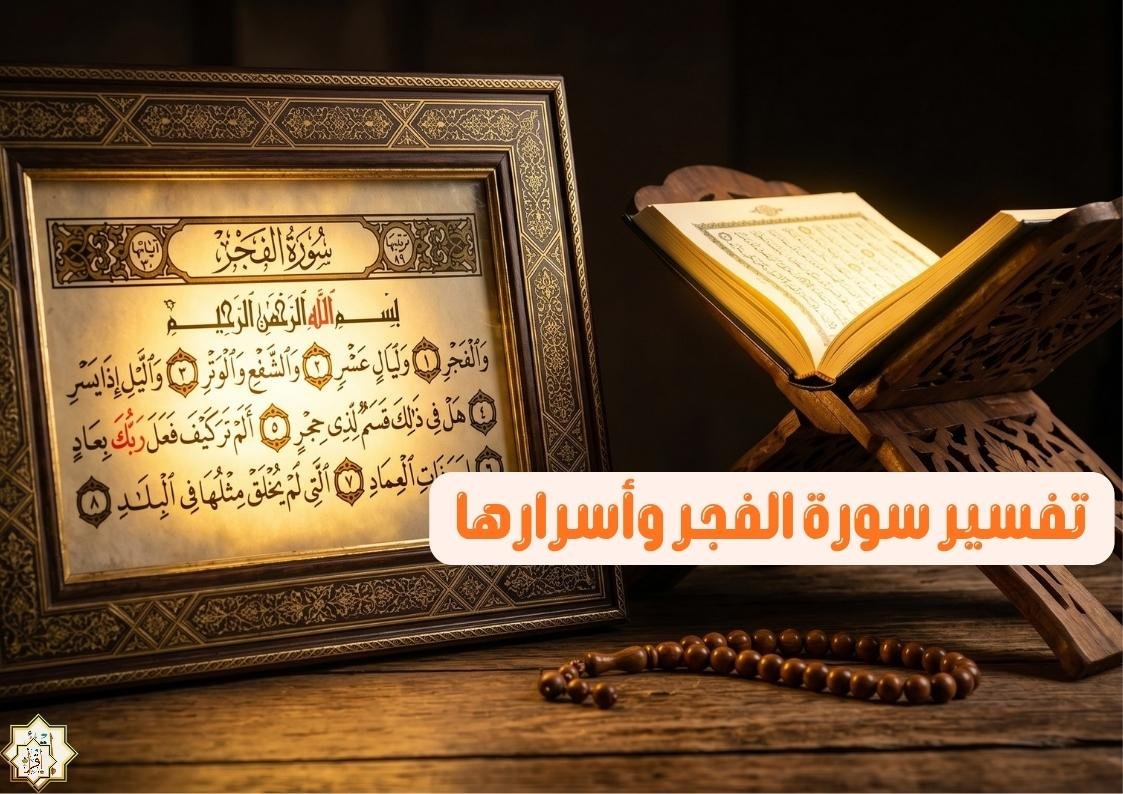 سُورَةُ الفَجْرِ
ترتيبها ٨٩
آياتها ٣٠
بِسْمِ ٱللَّهِ ٱلرَّحْمَٰنِ ٱلرَّحِيمِ
وَٱلْفَجْرِ ١ وَلَيَالٍ عَشْرٍ ٢ وَٱلشَّفْعِ وَٱلْوَتْرِ ٣ وَٱلَّيْلِ إِذَا يَسْرِ
٤ هَلْ فِى ذَٰلِكَ قَسَمٌ لِّذِى حِجْرٍ ٥ أَلَمْ تَرَ كَيْفَ فَعَلَ رَبُّكَ بِعَادٍ
٦ ٱلْعِمَادِ ٧ ٱلَّتِى لَمْ يُخْلَقْ مِثْلُهَا فِى ٱلْبِلَٰدِ ٨
تفسير سورة الفجر وأسرارها